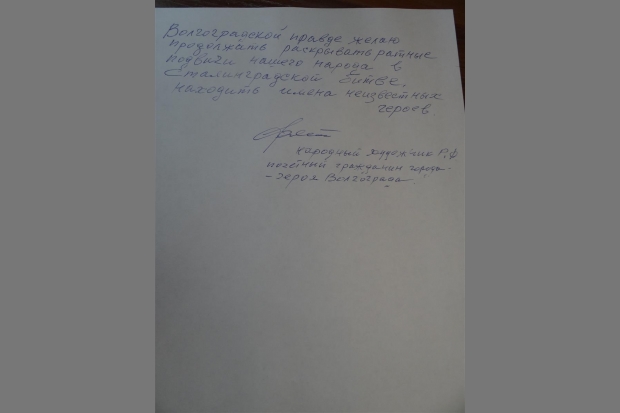 Волгоградской правде желаю
продолжить раскрывать ратные
подвиги нашего народа в
Сталинградской битве,
находить имена неизвестных
героев
народный художник Р.Ф
почётный гражданин города-
-героя Волгограда